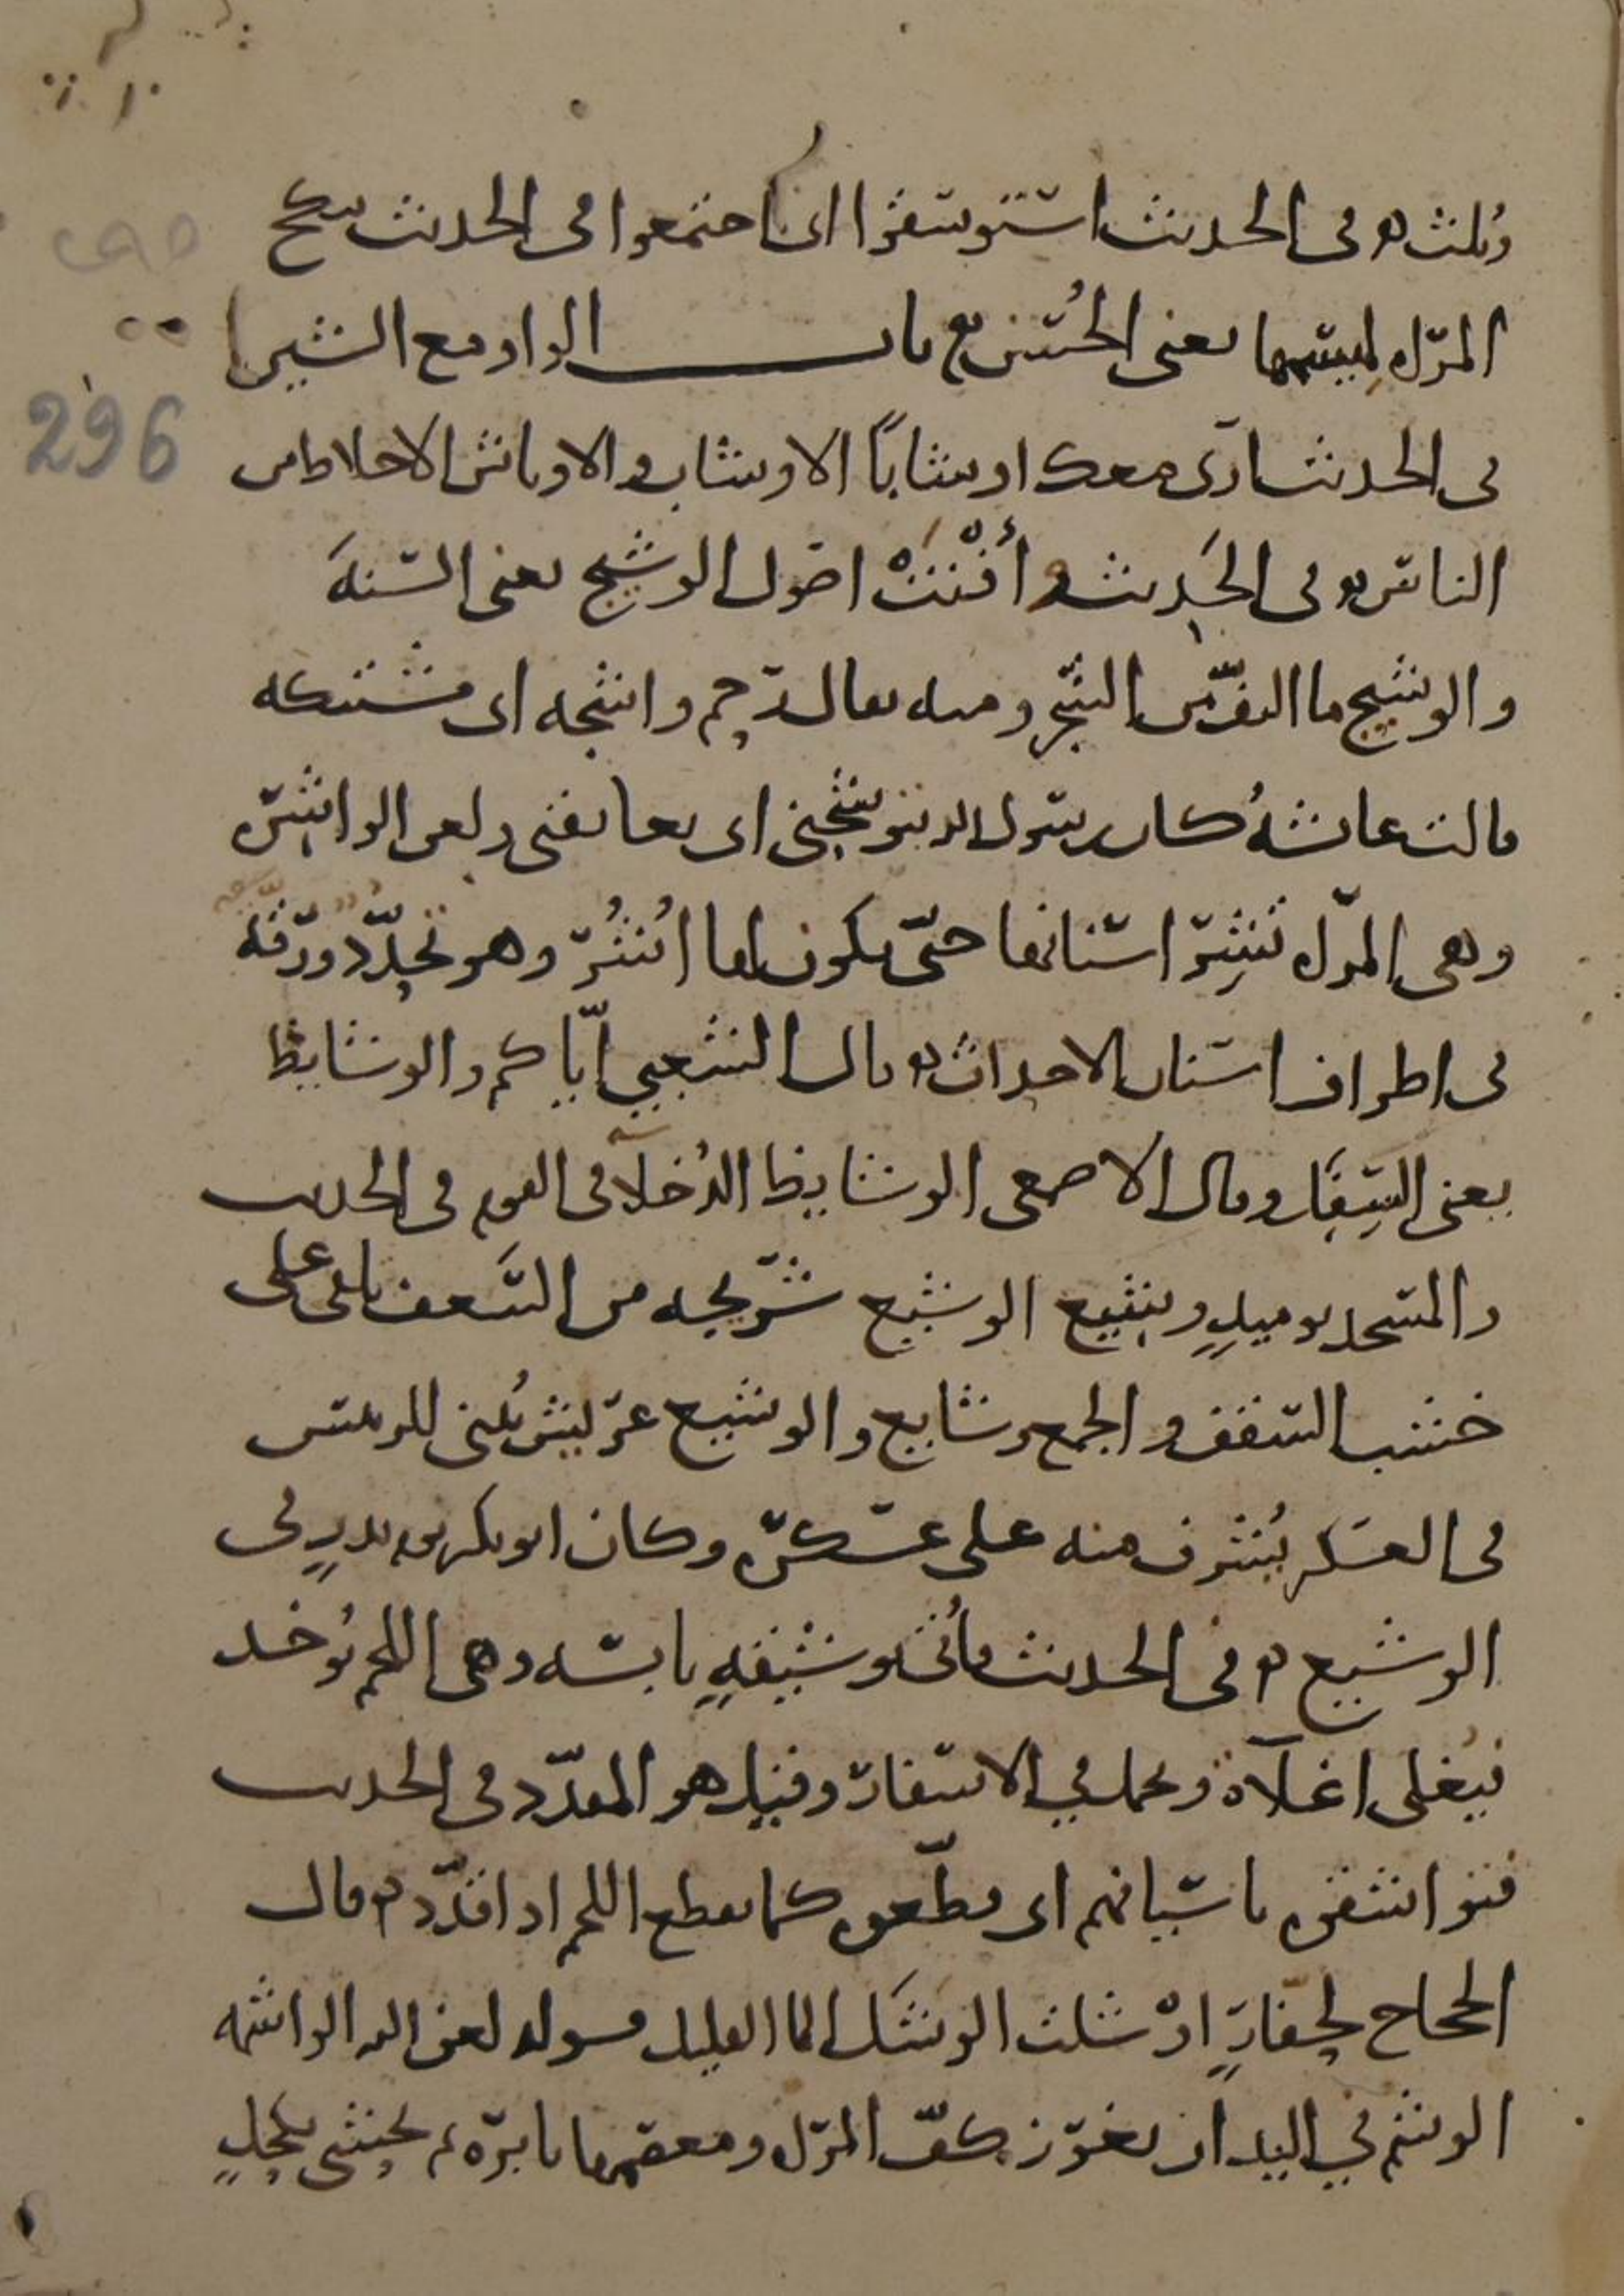 وثلث ه في الحديث استوسقوا اي اجتمعوا في الحديث تنكح
المرأة لميسمها يعني الحسن ع باب الواو مع الشين
في الحديث اري معك اوشابا الاوشاب والاوباش الاخلاط من
الناس ه في الحديث وأفنت اصول الوشيج يعني السنة
والوشيج ما التف من الشجر ومنه يقال رحم واشجه اي مشتبكه
قالت عائشة كان رسول الله يتوشحني اي يعانقني ولعن الواشرة
وهي المرأة تشر اسنانها حتى يكون لها أشر وهو تحدد ورقة
في اطراف اسنان الاحداث ه قال الشعبي اياكم والوشايظ
يعني السفل وقال الاصمعي الوشايظ الدخلاء في القوم في الحديث
والمسجد يوميذ وشيع الوشيع شريجه من السعف تلقى على
خشب السقف والجمع وشايع والوشيع عريش يبنى للرئيس
في العسكر يشرف منه على عسكره وكان ابو بكر يوم بدر في
الوشيع ه في الحديث فأتي بوشيقة يابسه وهي اللحم يوخد
فيغلى اغلاة ويحمل في الاسفار وقيل هو المقدد في الحديث
فتواشقوه باسيافهم اي قطعوه كما يقطع اللحم اذا قدد ه قال
الحجاج لحفار اوشلت الوشل الما القليل قوله لعن الله الواشمه
الوشم في اليد ان يغرز كف المرأة ومعصمها بابرة ثم يحشى بكحل
296